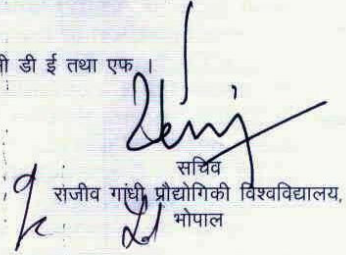 डी ई तथा एफ ।
सचिव
राजीव गांधी प्रौद्योगिकी विश्वविद्यालय,
भोपाल